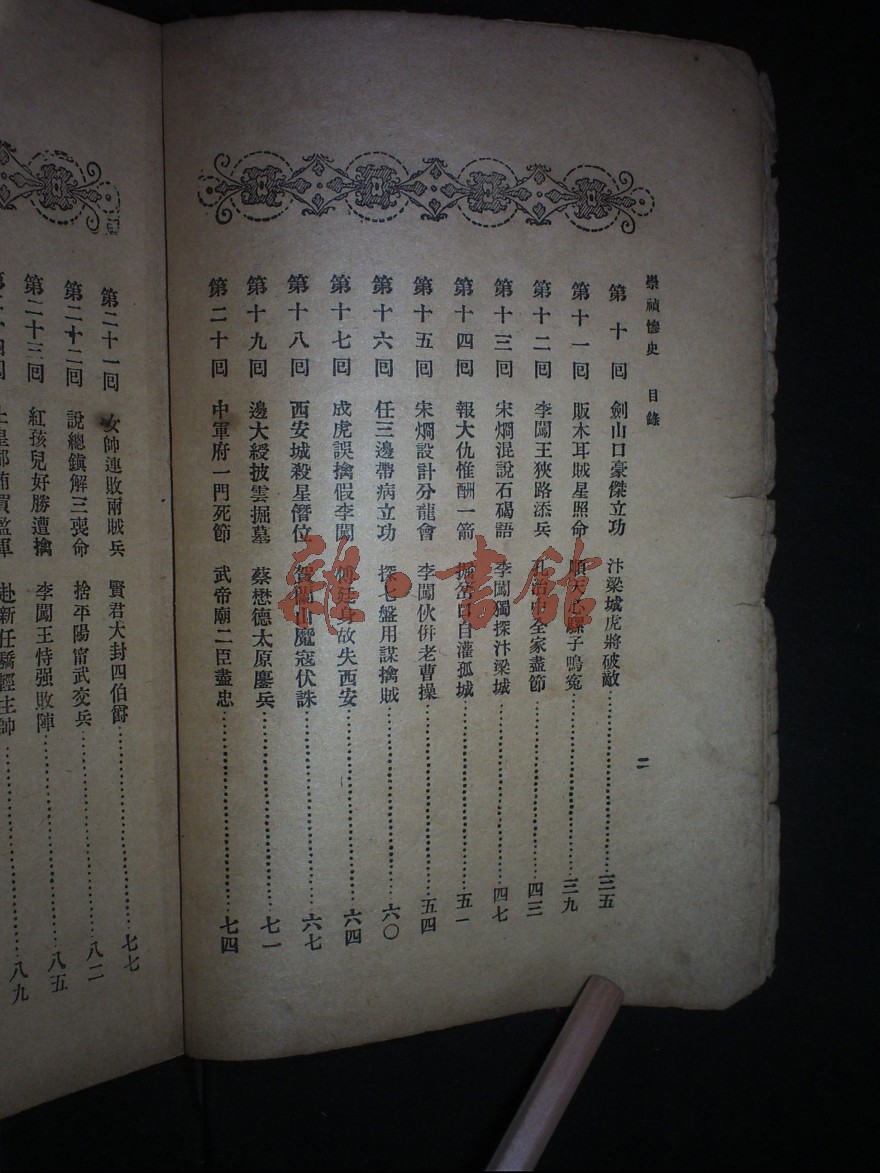 崇禎慘史 目錄 二
第十回 劍山口豪傑立功 汴梁城虎將破敵 三五
第十一回 販木耳賊星照命 順天心騾子鳴冤 三九
第十二回 李闖王狹路添兵 孔治中全家盡節 四三
第十三回 宋烱混說石碣語 李闖獨探汴梁城 四七
第十四回 報大仇惟酬一箭 掘 口自灌孤城 五一
第十五回 宋烱設計分龍會 李闖伙併老曹操 五四
第十六回 任三邊帶病立功 探七盤用謀擒賊 六〇
第十七回 成虎誤擒假李闖 廷身故失西安 六四
第十八回 西安城殺星僭位 賀蘭山魔寇伏誅 六七
第十九回 邊大綬披雲掘墓 蔡懋德太原鏖兵 七一
第二十回 中軍府一門死節 武帝廟二臣盡忠 七四
第二十一回 女帥連敗兩賊兵 賢君大封四伯爵 七七
第二十二回 說總鎮解三喪命 捨平陽甯武交兵 八二
第二十三回 紅孩兒好勝遭擒 李闖王恃强敗陣 八五
十四回 赴新任驕輕主帥 八九
雜·書館